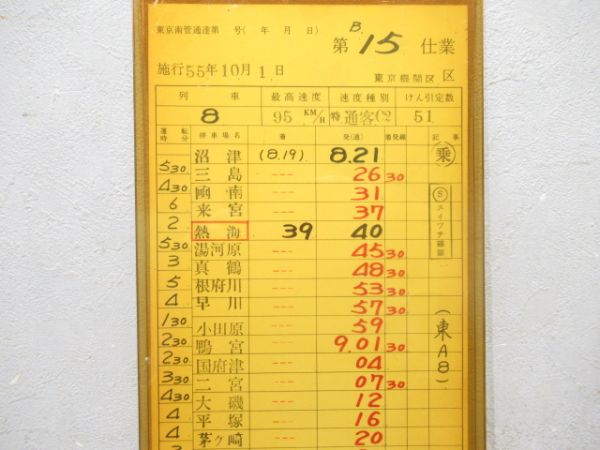 東京南管通達第 号( 年 月 日)
第 B15 仕業
施行55年10月1日
東京機関区 区
列車 最高速度 速度種別 けん引定数
8 95 KM/H 特通客C2 51
運転時分 停車場名 着 発(通) 着発線 記事
沼津 (8.19) 8.21 乗
530
三島 --- 26 30
430
函南 --- 31
6
来宮 --- 37
2
熱海 39 40
530
湯河原 --- 45 30
3
真鶴 --- 48 30
5
根府川 --- 53 30
4
早川 --- 57 30
130
小田原 --- 59
230
鴨宮 --- 9.01 30
230
国府津 --- 04
330
二宮 --- 07 30
430
大磯 --- 12
4
平塚 --- 16
4
茅ヶ崎 --- 20
S スイッチ確認
(東A8)